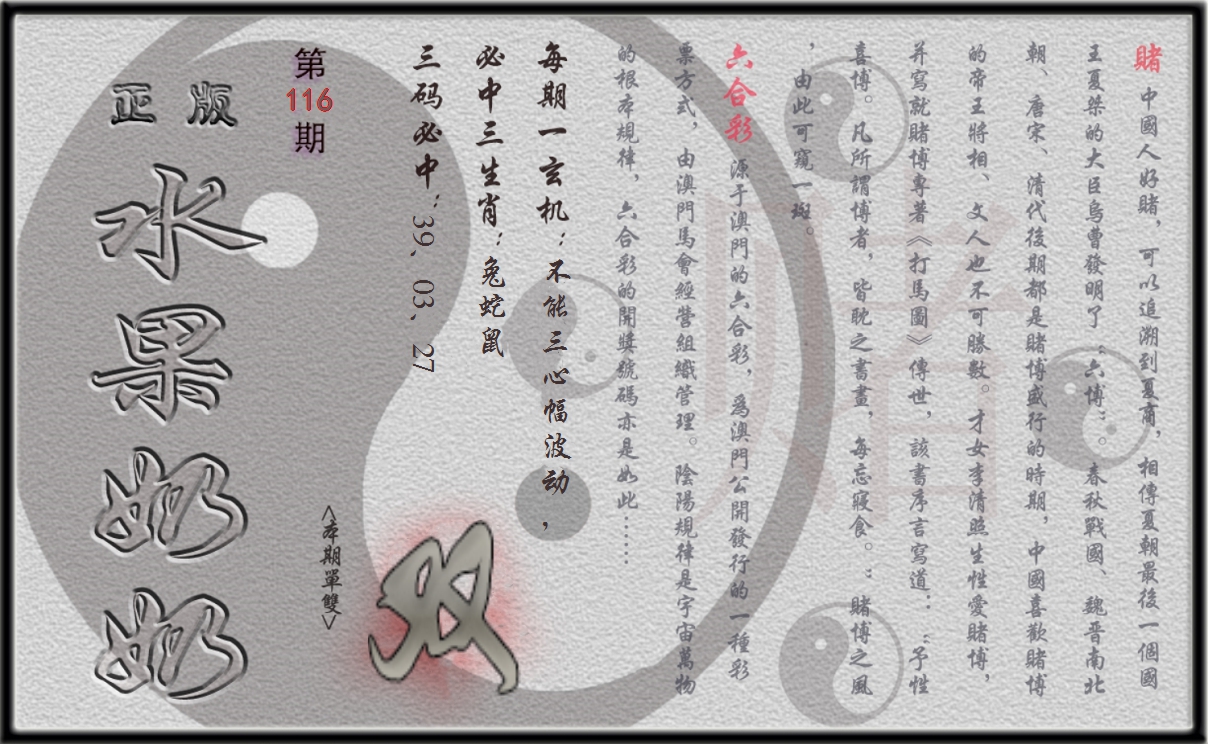 賭 中國人好賭，可以追溯到夏商，相傳夏朝最後一個國
王夏桀的大臣烏曹發明了“六博”。春秋戰國、魏晉南北
朝、唐宋、清代後期都是賭博盛行的時期，中國喜歡賭博
的帝王將相、文人也不可勝數。才女李清照生性愛賭博，
并寫就賭博專著《打馬圖》傳世，該書序言寫道：“予性
喜博。凡所謂博者，皆耽之晝晝，每忘寢食。：賭博之風
，由此可窺一斑。
六合彩 源于澳門的六合彩，為澳門公開發行的一種彩
票方式，由澳門馬會經營組織管理。陰陽規律是宇宙萬物
的根本規律，六合彩的開獎號碼亦是如此……
每期一玄机：不能三心幅波动，
必中三生肖：兔蛇鼠
三码必中：39、03、27
<本期單雙>
双
第
116
期
正版
水果奶奶